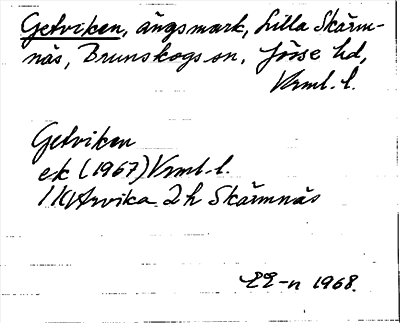 Getviken, ängsmark, Lilla Skärm-
näs, Brunskogs sn, Jösse hd,
Vrml. l.
Getviken
ek (1967) Vrml. l.
11 Arvika 2 h Skärmnäs
1968.